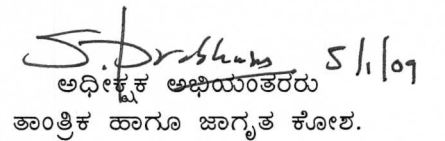 5/1/09
ಅಧೀಕ್ಷಕ ಅಭಿಯಂತರರು
ತಾಂತ್ರಿಕ ಹಾಗೂ ಜಾಗೃತ ಕೋಶ.